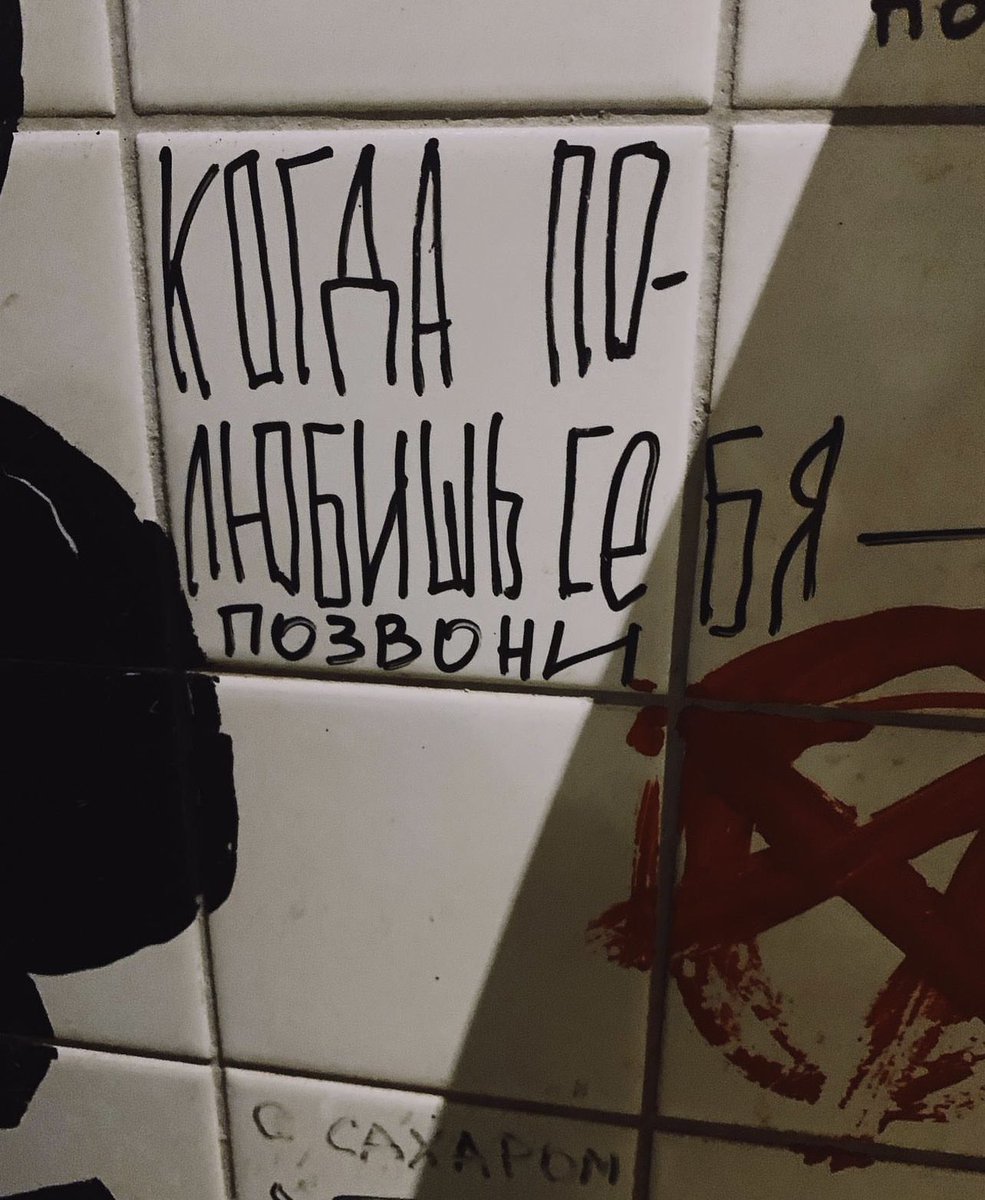 ПО
КОГДА ПО-
ЛЮБИШЬ СЕБЯ —
ПОЗВОНИ
С САХАРОМ